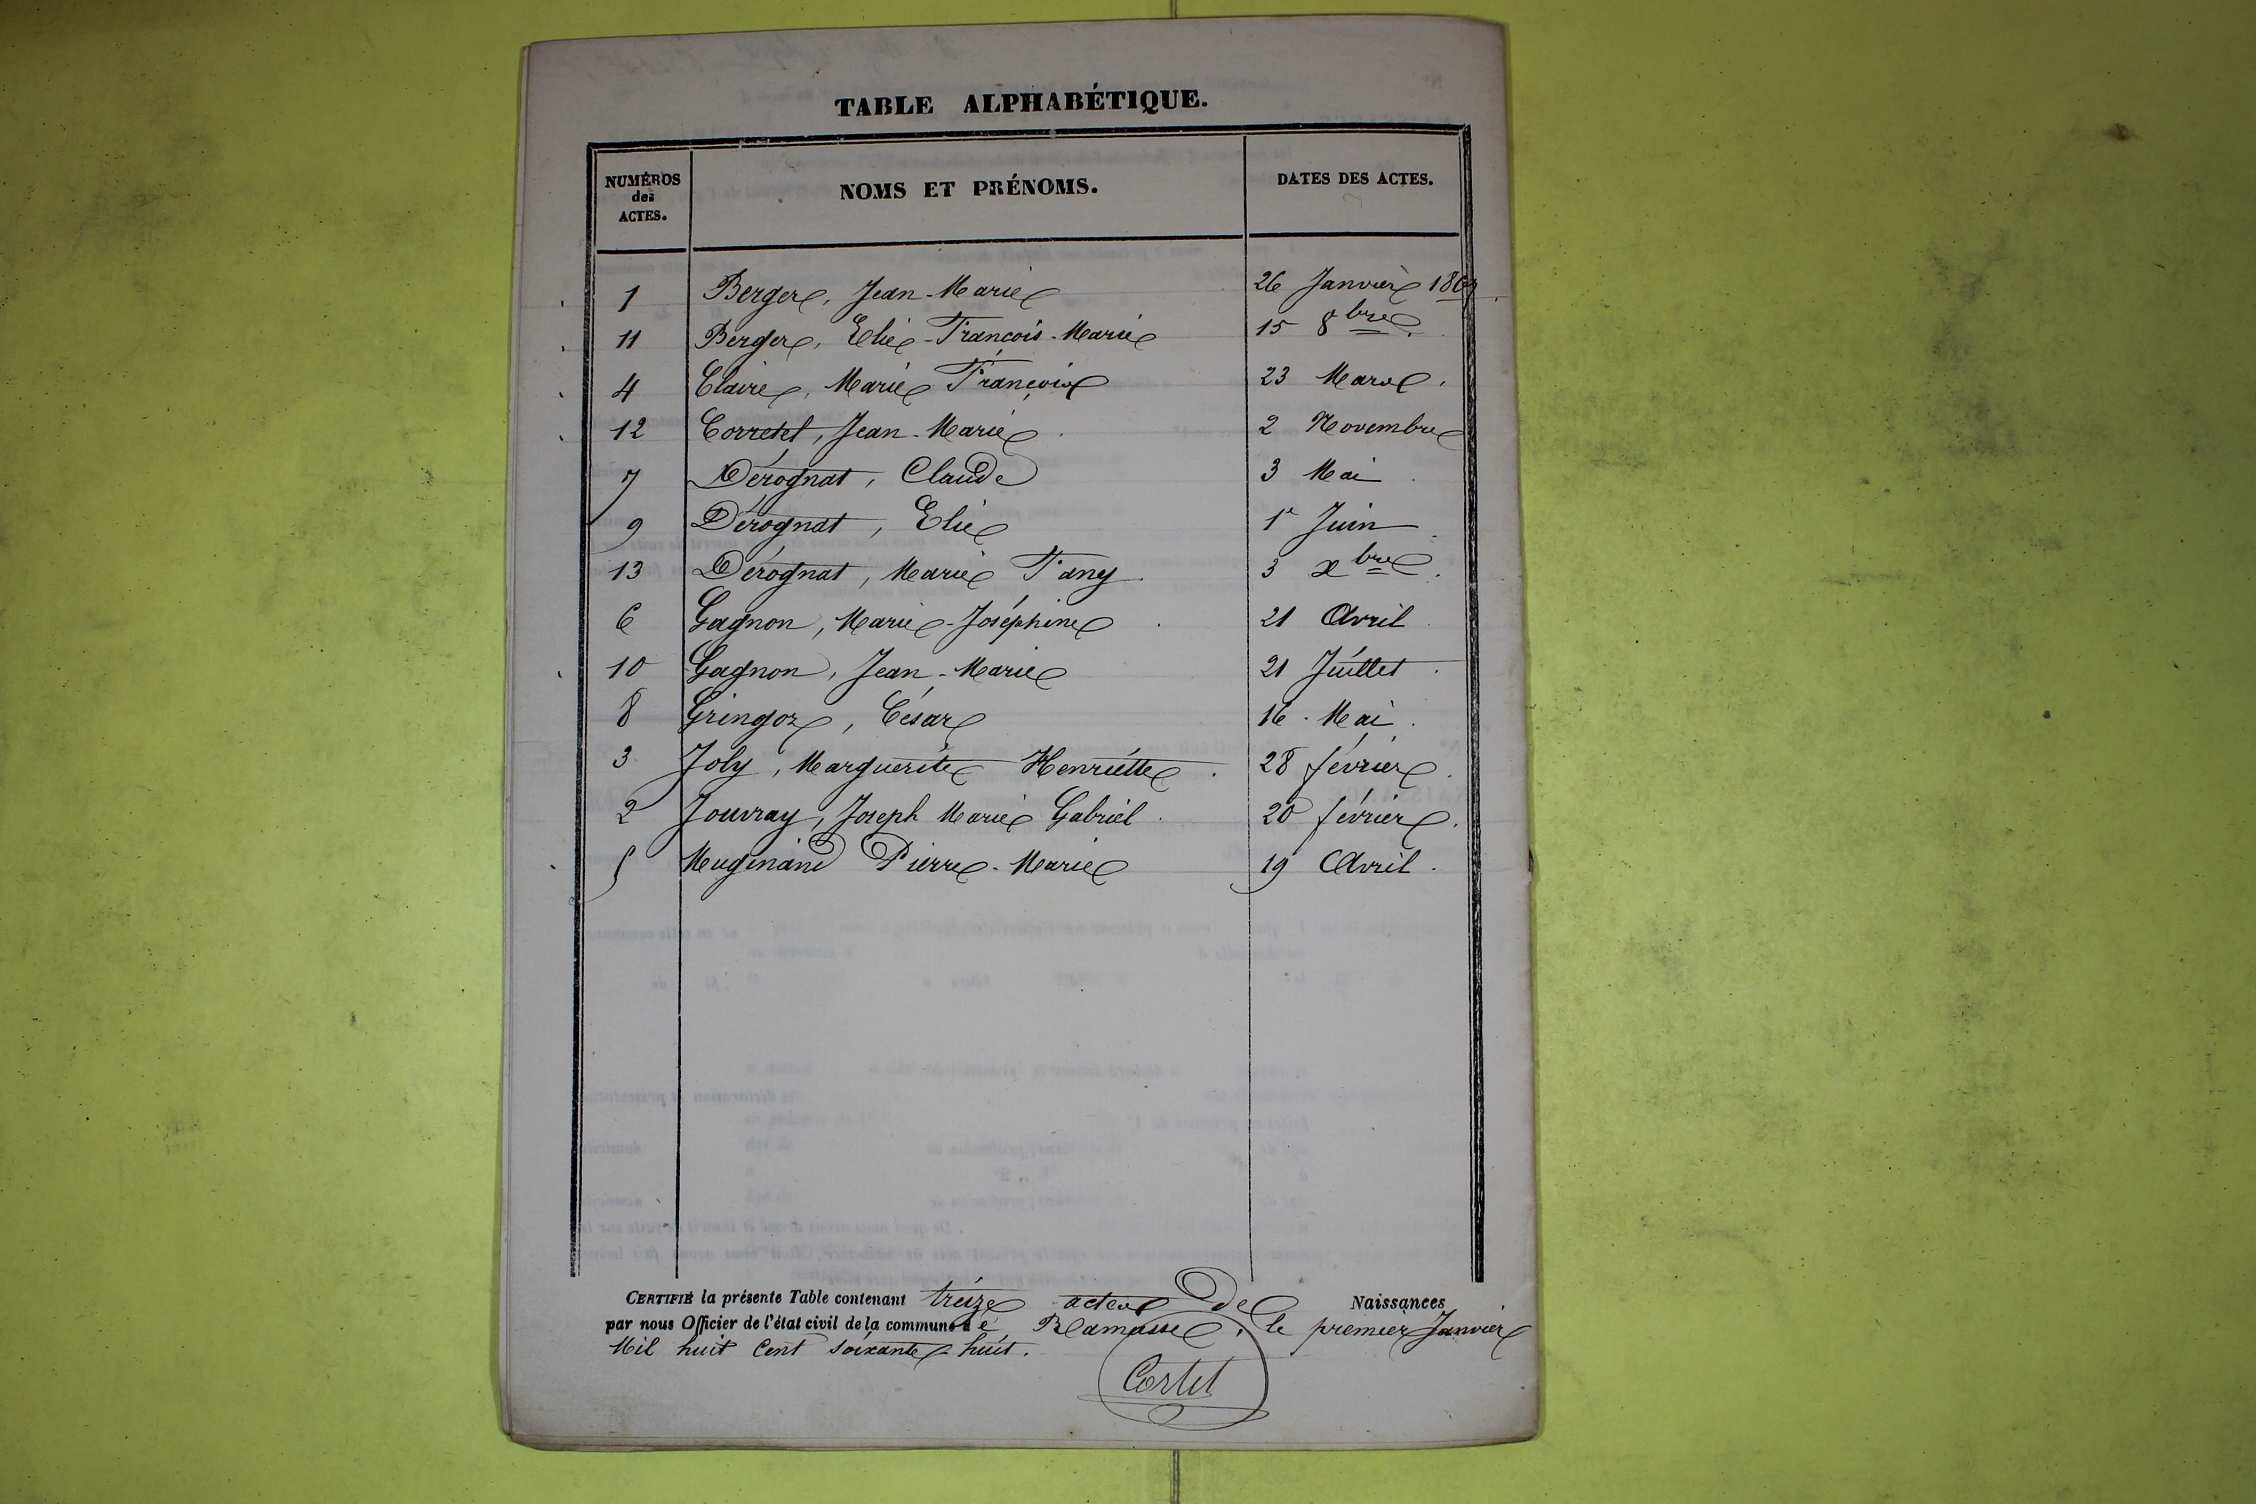 TABLE ALPHABÉTIQUE.
NUMÉROS des ACTES. NOMS ET PRÉNOMS. DATES DES ACTES.
1 Berger, Jean-Marie 26 Janvier 1867
11 Berger, Elie-François-Marie 15 8bre.
4 Claire, Marie François 23 Mars.
12 Corretel, Jean-Marie 2 Novembre
7 Dérognat, Claude 3 Mai
9 Dérognat, Elie 1r Juin
13 Dérognat, Marie Fany 3 xbre.
6 Gagnon, Marie-Joséphine 21 Avril
10 Gagnon, Jean-Marie 21 Juillet
8 Gringoz, César 16 Mai.
3 Joly, Marguerite Henriette. 28 février.
2 Jouvray, Joseph Marie Gabriel. 20 février.
5 Mugmand Pierre-Marie 19 Avril.
CERTIFIÉ la présente Table contenant treize actes de Naissances
par nous Officier de l'état civil de la commune de Ramasse, le premier Janvier
Mil huit Cent soixante-huit.
Cortet